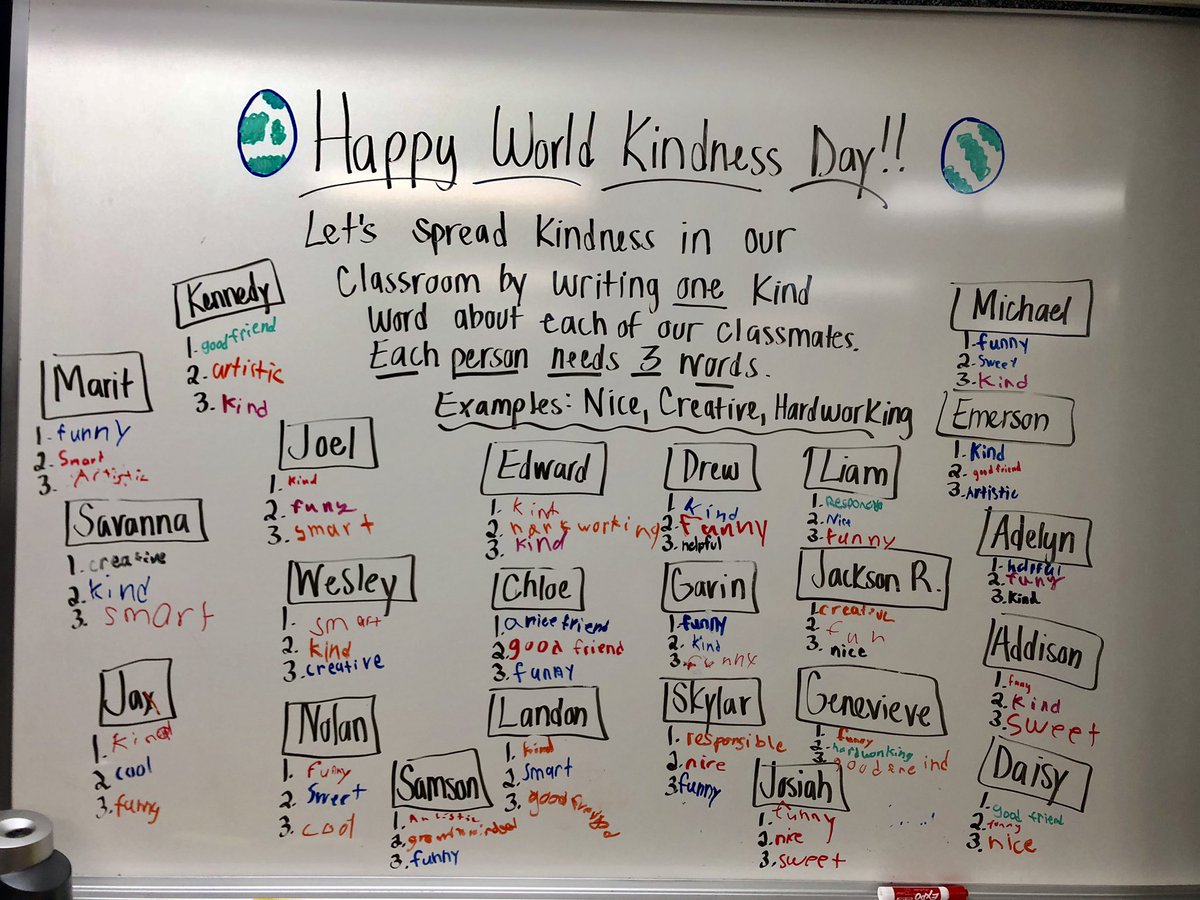 Happy World Kindness Day!!
Let's spread Kindness in our
Classroom by writing one Kind
Word about each of our classmates.
Each person needs 3 words.
Examples: Nice, Creative, Hardworking
Kennedy
1. good friend
2. artistic
3. kind
Marit
1. funny
2. Smart
3. Artistic
Savanna
1. creative
2. kind
3. smart
Jax
1. kind
2. cool
3. funny
Joel
1. kind
2. funy
3. smart
Wesley
1. smart
2. kind
3. creative
Nolan
1. Funny
2. Sweet
3. cool
Samson
1. Artistic
2.
3. funny
Edward
1.
2. working
3. kind
Chloe
1. a nice friend
2. good friend
3. funny
Landon
1. kind
2. smart
3. good
Drew
1. kind
2. Funny
3. helpful
Gavin
1. funny
2. kind
3. funny
Skylar
1. responsible
2. nice
3. funny
Josiah
1. funny
2. nice
3. sweet
Liam
1.
2. Nice
3. funny
Jackson R.
1. creative
2. fun
3. nice
Genevieve
1. funny
2. hardworking
3. good
Michael
1. funny
2. Sweet
3. Kind
Emerson
1. Kind
2. good friend
3. Artistic
Adelyn
1. helpful
2. funy
3. Kind
Addison
1. funy
2. Kind
3. Sweet
Daisy
1. good friend
2. funny
3. nice
EXPO